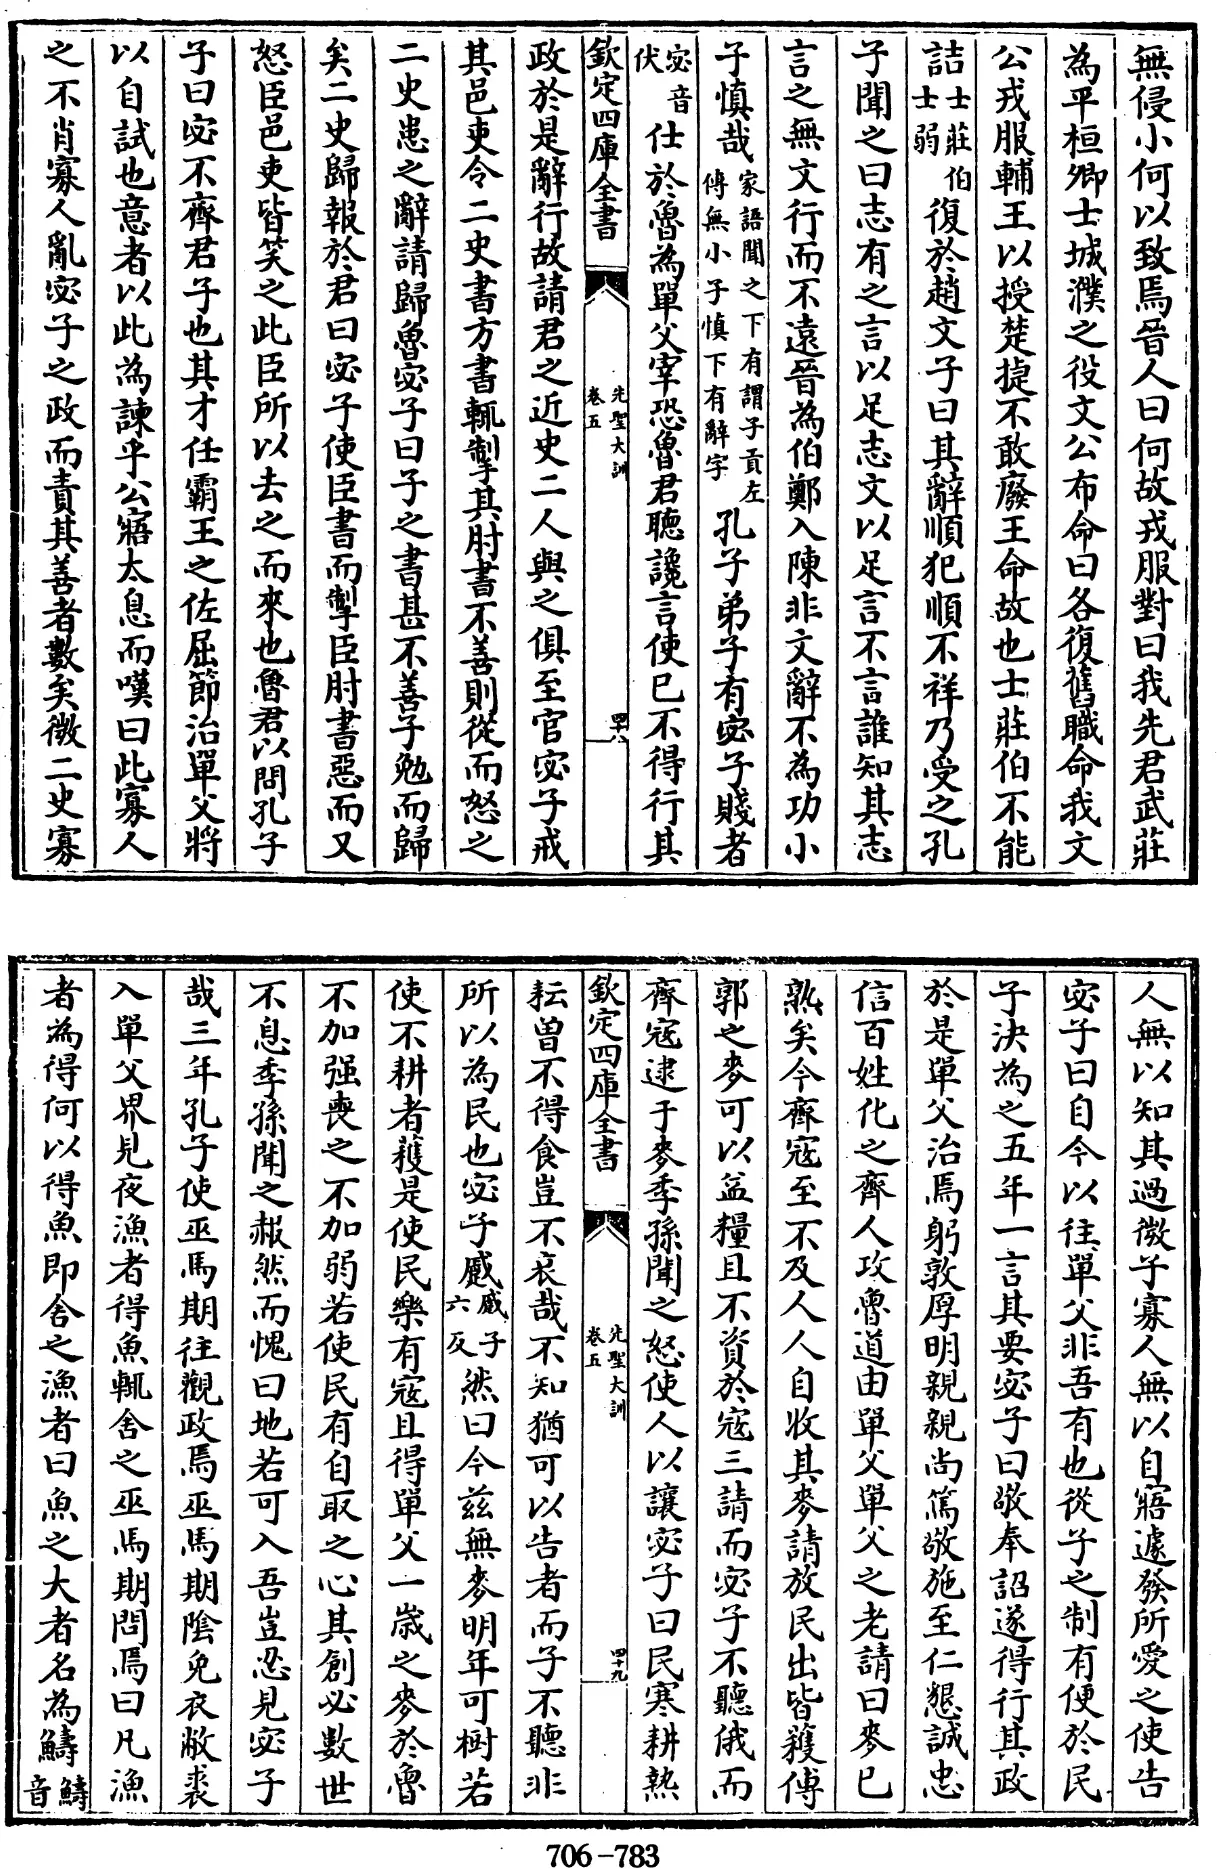 無侵小何以致焉晉人曰何故戎服對曰我先君武莊
為平桓卿士城濮之役文公布命曰各復舊職命我文
公戎服輔王以授楚捷不敢廢王命故也士莊伯不能
詰士莊伯士弱復於趙文子曰其辭順犯順不祥乃受之孔
子聞之曰志有之言以足志文以足言不言誰知其志
言之無文行而不遠晉為伯鄭入陳非文辭不為功小
子慎哉家語聞之下有謂子貢左傳無小子慎下有辭字孔子弟子有宓子賤者
宓音伏仕於魯為單父宰恐魯君聽讒言使已不得行其
欽定四庫全書 先聖大訓卷五 四十八
政於是辭行故請君之近史二人與之俱至官宓子戒
其邑吏令二史書方書輒掣其肘書不善則從而怒之
二史患之辭請歸魯宓子曰子之書甚不善子勉而歸
矣二史歸報於君曰宓子使臣書而掣臣肘書惡而又
怒臣邑吏皆笑之此臣所以去之而來也魯君以問孔子
子曰宓不齊君子也其才任霸王之佐屈節治單父將
以自試也意者以此為諫乎公寤太息而嘆曰此寡人
之不肖寡人亂宓子之政而責其善者數矣微二史寡
人無以知其過微子寡人無以自寤遽發所愛之使告
宓子曰自今以往單父非吾有也從子之制有便於民
子決為之五年一言其要宓子曰敬奉詔遂得行其政
於是單父治焉躬敦厚明親親尚篤敬施至仁懇誠忠
信百姓化之齊人攻魯道由單父單父之老請曰麥已
熟矣今齊寇至不及人人自收其麥請放民出皆穫傅
郭之麥可以益糧且不資於寇三請而宓子不聽俄而
齊寇逮于麥季孫聞之怒使人以讓宓子曰民寒耕熱
欽定四庫全書 先聖大訓卷五 四十九
耘曾不得食豈不哀哉不知猶可以告者而子不聽非
所以為民也宓子蹙蹙子六反然曰今茲無麥明年可樹若
使不耕者穫是使民樂有寇且得單父一歲之麥於魯
不加强喪之不加弱若使民有自取之心其創必數世
不息季孫聞之赧然而愧曰地若可入吾豈忍見宓子
哉三年孔子使巫馬期往觀政焉巫馬期陰免衣敝裘
入單父界見夜漁者得魚輒舍之巫馬期問焉曰凡漁
者為得何以得魚即舍之漁者曰魚之大者名為鱄鱄音
706-783